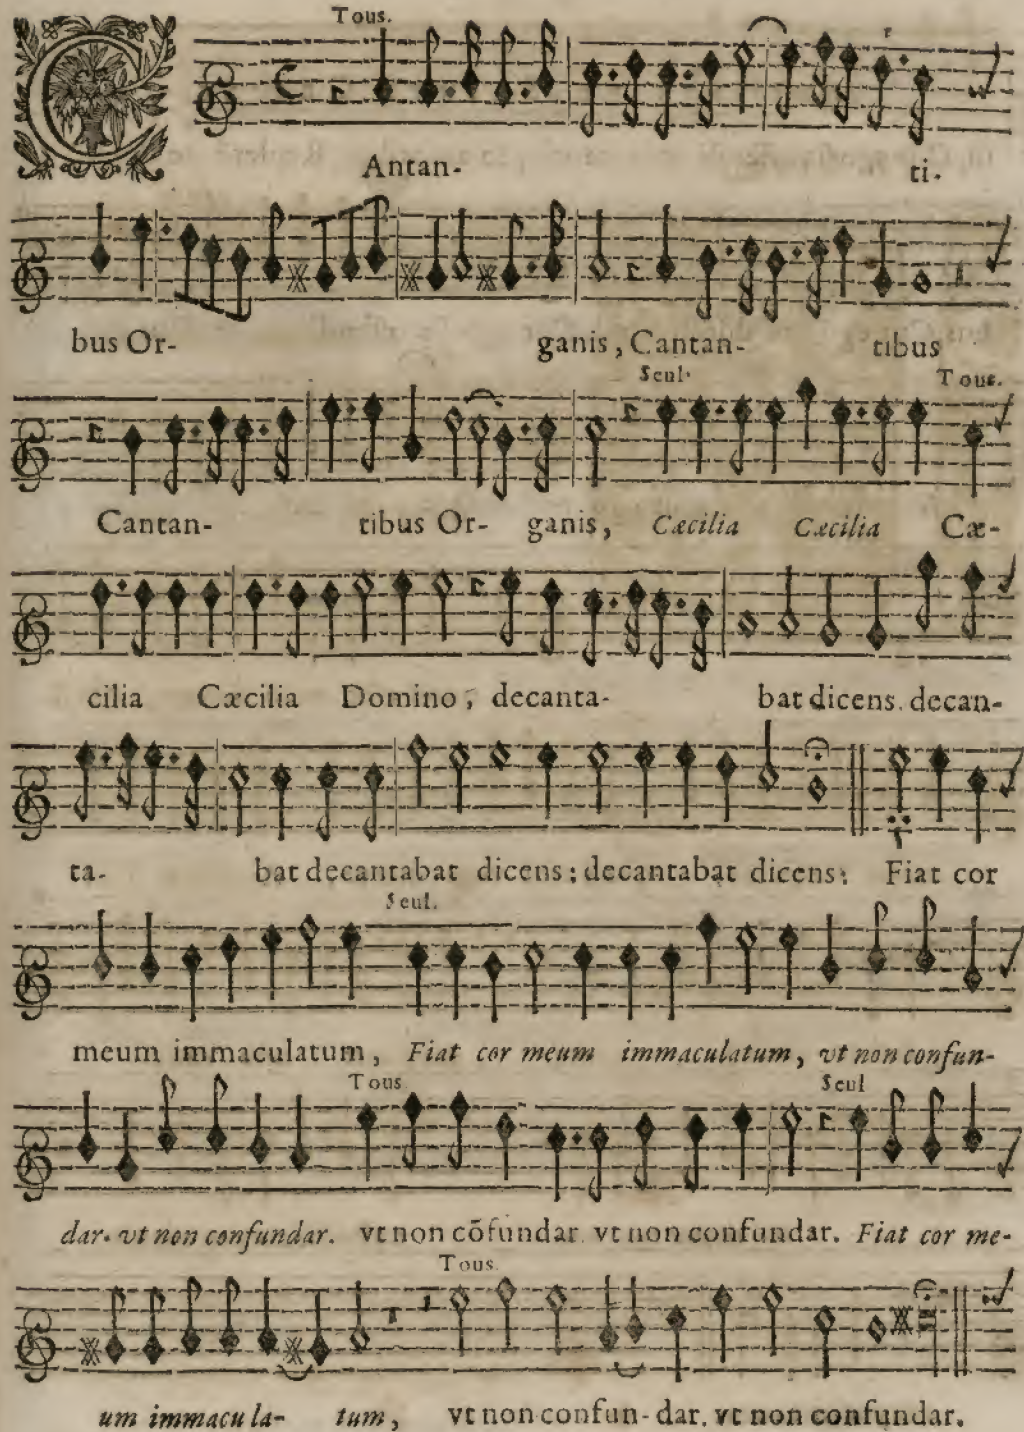 Tous.
CAntan- ti-
bus Or- ganis, Cantan- tibus
Seul. Tous.
Cantan- tibus Or- ganis, Cæcilia Cæcilia Cæ-
cilia Cæcilia Domino, decanta- bat dicens. decan-
ta- bat decantabat dicens; decantabat dicens: Fiat cor
Seul.
meum immaculatum, Fiat cor meum immaculatum, vt non confun-
Tous Seul
dar. vt non confundar. vt non cõfundar. vt non confundar. Fiat cor me-
Tous.
um immacula- tum, vt non confun- dar. vt non confundar.